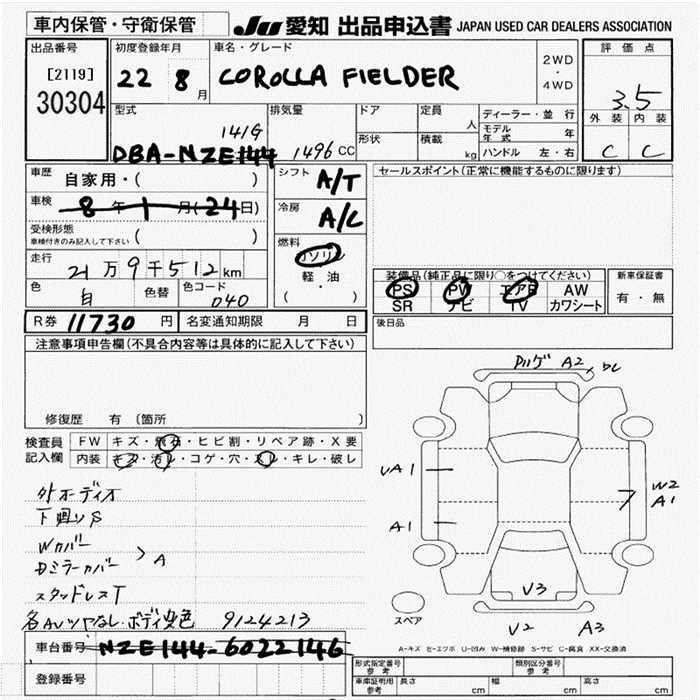 車内保管・守衛保管 JU 愛知 出品申込書 JAPAN USED CAR DEALERS ASSOCIATION
出品番号 [2119] 30304
初度登録年月 22 8月
車名・グレード COROLLA FIELDER
2WD ・ 4WD
評価点 3.5
外装 内装
C C
型式 141G DBA-NZE144
排気量 1496cc
ドア
形状
定員 人
積載 kg
ディーラー・並行
モデル年式 年
ハンドル 左・右
車歴 自家用・( )
車検 8年1月(24日)
受検形態
車検付きのみ記入して下さい ( )
走行 21万9千512km
色 白 色替 色コード 040
シフト A/T
冷房 A/C
燃料 ガソリン
軽・油
( )
セールスポイント(正常に機能するものに限ります)
装備品(純正品に限り○をつけてください)
PS PW エアB AW
SR ナビ TV カワシート
新車保証書
有・無
R券 11730円 名変通知期限 月 日
後日品
注意事項申告欄(不具合内容等は具体的に記入して下さい)
修復歴 有 〔箇所 〕
検査員記入欄
FW キズ・飛石・ヒビ割・リペア跡・X要
内装 キズ・汚れ・コゲ・穴・スレ・キレ・破レ
外オーディオ
下廻りS
Wカバー
DミラーカバーA
スタッドレスT
各AVツヤなし・ボディ変色 9124213
車台番号 NZE144-6022146
登録番号
A2
UA1
A1
W2
A1
V3
V2 A3
スペア
A-キズ E-エクボ U-凹み W-補修跡 S-サビ C-腐食 XX-交換済
形式指定番号 参考
類別区分番号 参考
車庫証明用 参考 長さ cm 幅 cm 高さ cm